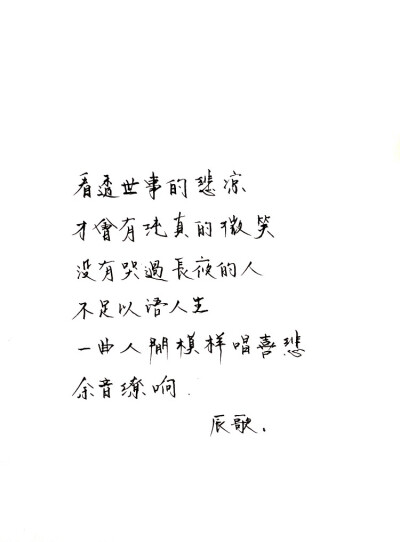 看透世事的悲凉
才會有纯真的微笑
没有哭過長夜的人
不足以语人生
一曲人間模样唱喜悲
余音嘹响.
辰歌.